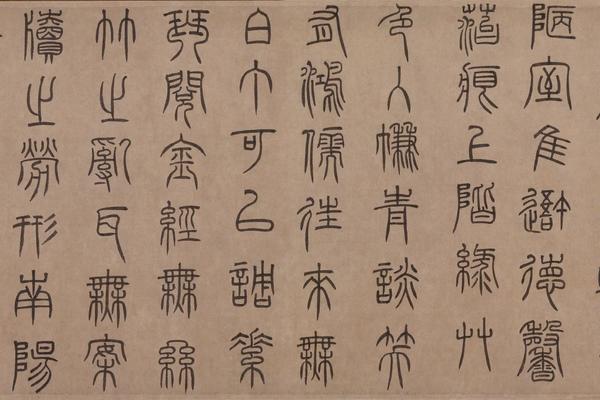 陋室隹吾德馨
苔痕上階綠艸
色入簾青談笑
有鴻儒往來無
白丁可以調素
琴閱金經無絲
竹之亂耳無案
牘之勞形南陽